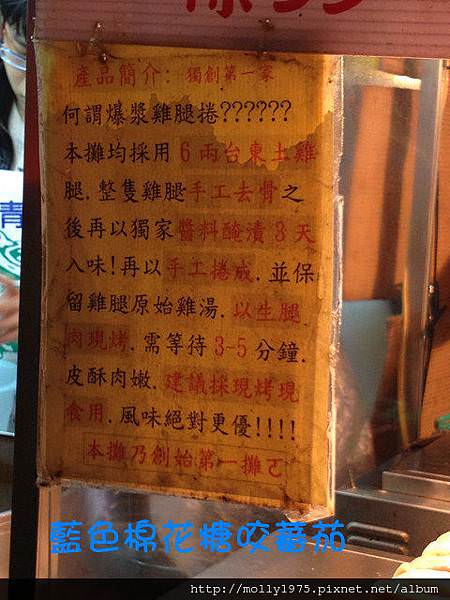 產品簡介: 獨創第一家
何謂爆漿雞腿捲??????
本攤均採用 6 兩台東土雞
腿. 整隻雞腿手工去骨之
後再以獨家醬料醃漬 3 天
入味!再以手工捲成. 並保
留雞腿原始雞湯. 以生腿
肉現烤. 需等待 3-5 分鐘.
皮酥肉嫩. 建議採現烤現
食用. 風味絕對更優!!!!
本攤乃創始第一攤ㄛ
青
藍色棉花糖咬蕃茄
http://molly1975.pixnet.net/album